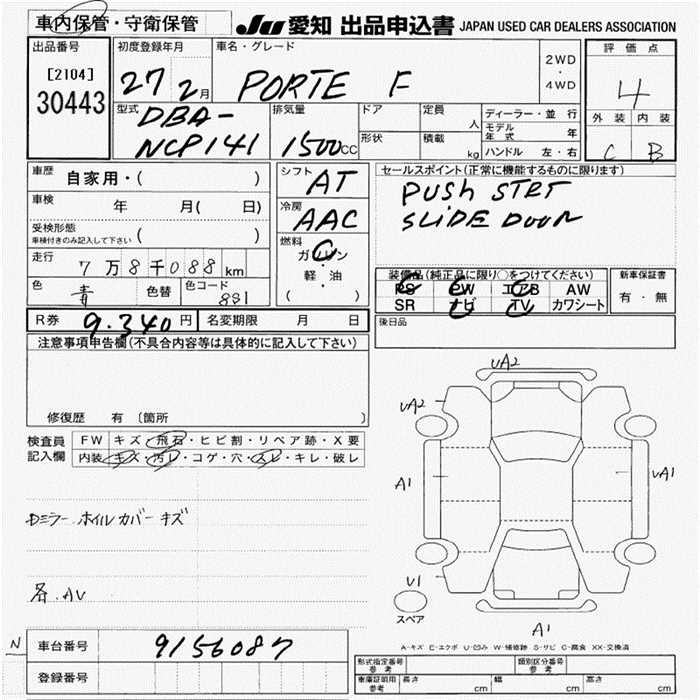 車内保管・守衛保管 JU 愛知 出品申込書 JAPAN USED CAR DEALERS ASSOCIATION
出品番号 初度登録年月 車名・グレード 評価点
[2104] 27年 2月 PORTE F 2WD・4WD 4
30443
型式 排気量 ドア 定員 人 ディーラー・並行 外装 内装
DBA- モデル年式 年
NCP141 1500CC 形状 積載 kg ハンドル 左・右 C B
車歴 自家用・( ) シフト AT セールスポイント(正常に機能するものに限ります)
車検 年 月( 日) 冷房 AAC PUSH STRT
受検形態 SLIDE DOOR
車検付きのみ記入して下さい ( ) 燃料
走行 7万8千088km ガソリン・軽・油 ( ) 装備品(純正品に限り○をつけてください) 新車保証書
色 青 色替 色コード 8S1 PS PW エアB AW 有・無
SR ナビ TV カワシート
R券 9.340円 名変期限 月 日 後日品
注意事項申告欄(不具合内容等は具体的に記入して下さい)
修復歴 有〔箇所 〕
検査員記入欄 FW キズ・飛石・ヒビ割・リペア跡・X要
内装 キズ・汚レ・コゲ・穴・スレ・キレ・破レ
UA2
UA2
A1 UA1
Dミラー ホイルカバーキズ
U1
各.AV
スペア
A1
A-キズ E-エクボ U-凹み W-補修跡 S-サビ C-腐食 XX-交換済
N 車台番号 9156087
登録番号
形式指定番号 参考 類別区分番号 参考
車庫証明用 参考 長さ cm 幅 cm 高さ cm